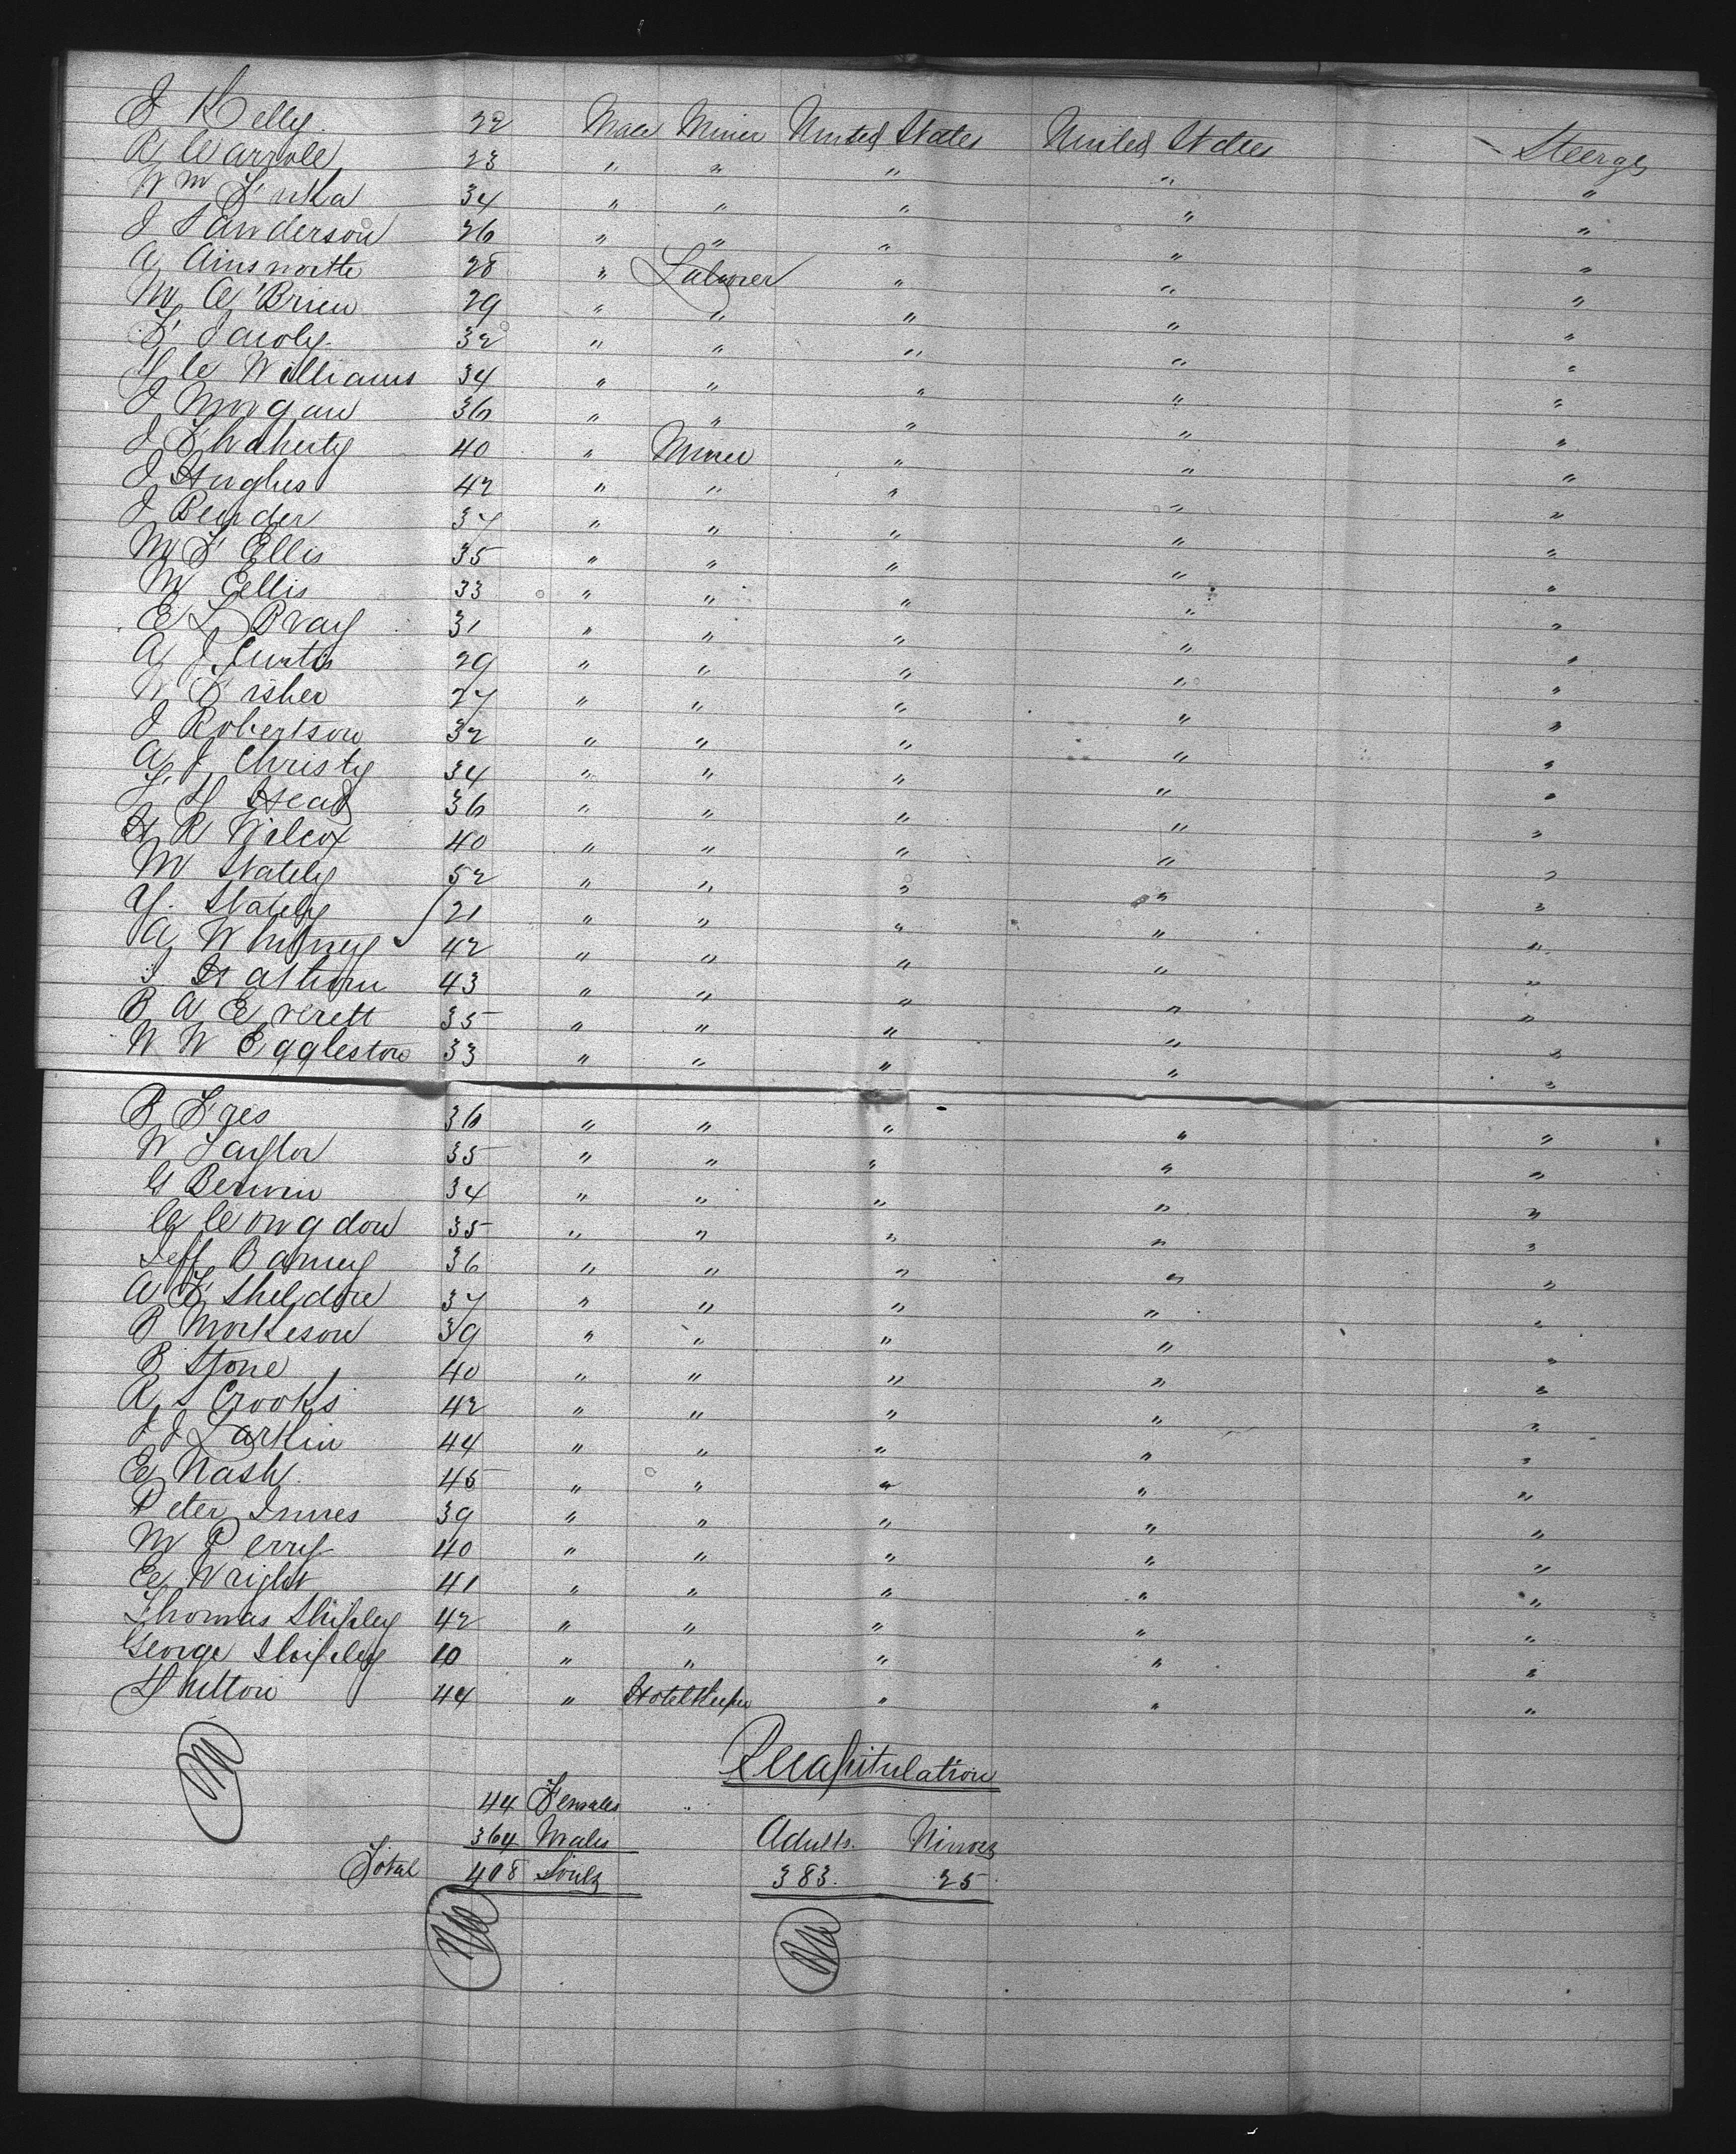 J Kelly 22 Male Miner United States United States Steerge
R Carrole 23 " " " " "
Wm 34 " " " " "
J Sanderson 26 " " " " "
A Ainsworth 28 " Laborer " " "
M O'Brien 29 " " " " "
F Jacoby 32 " " " " "
Y C Williams 34 " " " " "
J Morgan 36 " " " " "
J Flaherty 40 " Miner " " "
J Hughes 42 " " " " "
J Bender 37 " " " " "
M F Ellis 35 " " " " "
M Ellis 33 " " " " "
E L Bray 31 " " " " "
A J Curtis 29 " " " " "
W Fisher 27 " " " " "
J Robertson 32 " " " " "
A J Christy 34 " " " " "
Head 36 " " " " "
H R Wilcox 40 " " " " "
M Stately 52 " " " " "
Y. Stately 21 " " " " "
A Whitney 42 " " " " "
Hathorn 43 " " " " "
B A Everett 35 " " " " "
W W Eggleston 33 " " " " "
B 36 " " " " "
W Taylor 35 " " " " "
G Berwin 34 " " " " "
C Congdon 35 " " " " "
Jeff Barney 36 " " " " "
A F Sheldon 37 " " " " "
B Morkeson 39 " " " " "
B Stone 40 " " " " "
R S Crooks 42 " " " " "
J J Larkin 44 " " " " "
E Nash 45 " " " " "
Peter Innes 39 " " " " "
M Perry 40 " " " " "
E Wright 41 " " " " "
Thomas Shipley 42 " " " " "
George Shipley 10 " " " " "
44 " Hotel Keeper " " "
Recapitulation
44 Females
364 Males Adults. Minors
Total 408 Souls 383. 25